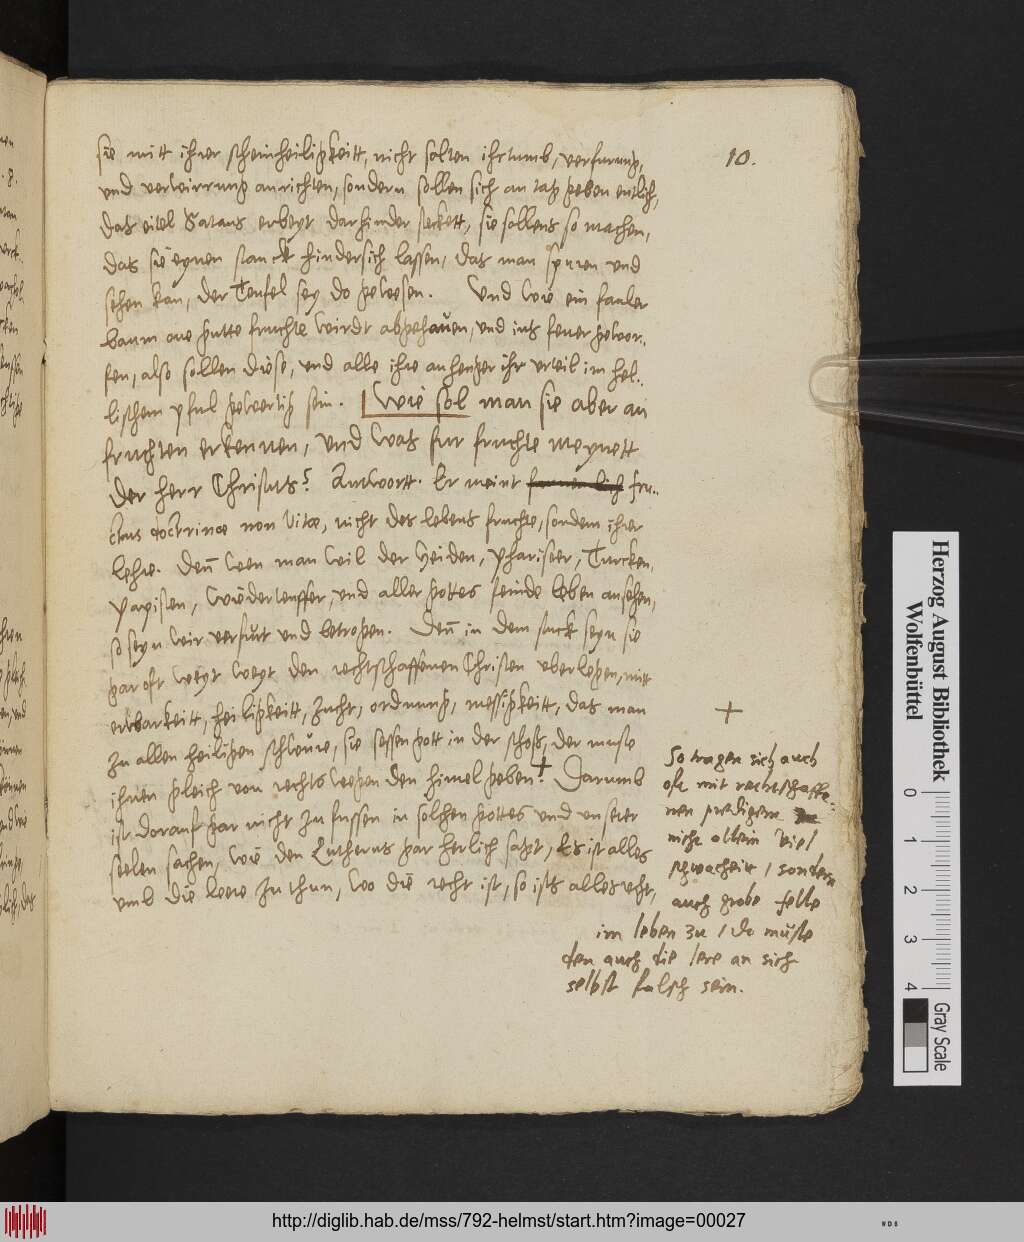 10.
sie mitt ihrer scheinheiligkeitt, nicht solten ihrtumb, verfurung,
und verwirrung anrichten, sondern sollen sich an tag geben entlich,
das eitel Satans erbeyt darhinder steckett, sie sollens so machen,
das sie eynen stanck hindersich lassen, das man spuren und
sehen kan, der Teufel sey do gewesen. Und wie ein fauler
baum one gutte fruchte wirdt abgehauen, und ins feuer gewor-
fen, also sollen diese, und alle ihre anhenger ihr urteil im hel-
lischem pful gewertig sein. Wie sol man sie aber an
fruchten erkennen, und was fur fruchte meynett
der herr Christus? Antwortt. Er meint fru-
ctus doctrinae non vitae, nicht des lebens fruchte, sondern ihrer
lehre. Den wen man wil der Heiden, Phariseer, Turcken,
Papisten, Wiederteuffer, und aller gottes feinde leben ansehen,
so seyn wir verfurt und betrogen. Den in dem stuck seyn sie
gar oft weyt weyt den rechtschaffenen Christen uberlegen, mitt
erbarkeitt, heiligkeitt, zucht, ordnung, messigkeitt, das man
zu allen heiligen schwure, sie sessen gott in der schoß, der muste
ihnen gleich von rechts wegen den himel geben. + Darumb
ist dorauf gar nicht zu fussen in solchen gottes und unserer
seelen sachen, wie den Lutherus gar herlich sagt, Es ist alles
umb die leere zu thun, wo die recht ist, so ists alles recht,
+
So tragen sich auch
oft mit rechtschaffe-
nen predigern
nicht allein viel
schwacheit / sondern
auch grobe felle
im leben zu / do muste
den auch die lere an sich
selbst falsch sein.
Herzog August Bibliothek
Wolfenbüttel
0 1 2 3 4
Gray Scale
http://diglib.hab.de/mss/792-helmst/start.htm?image=00027